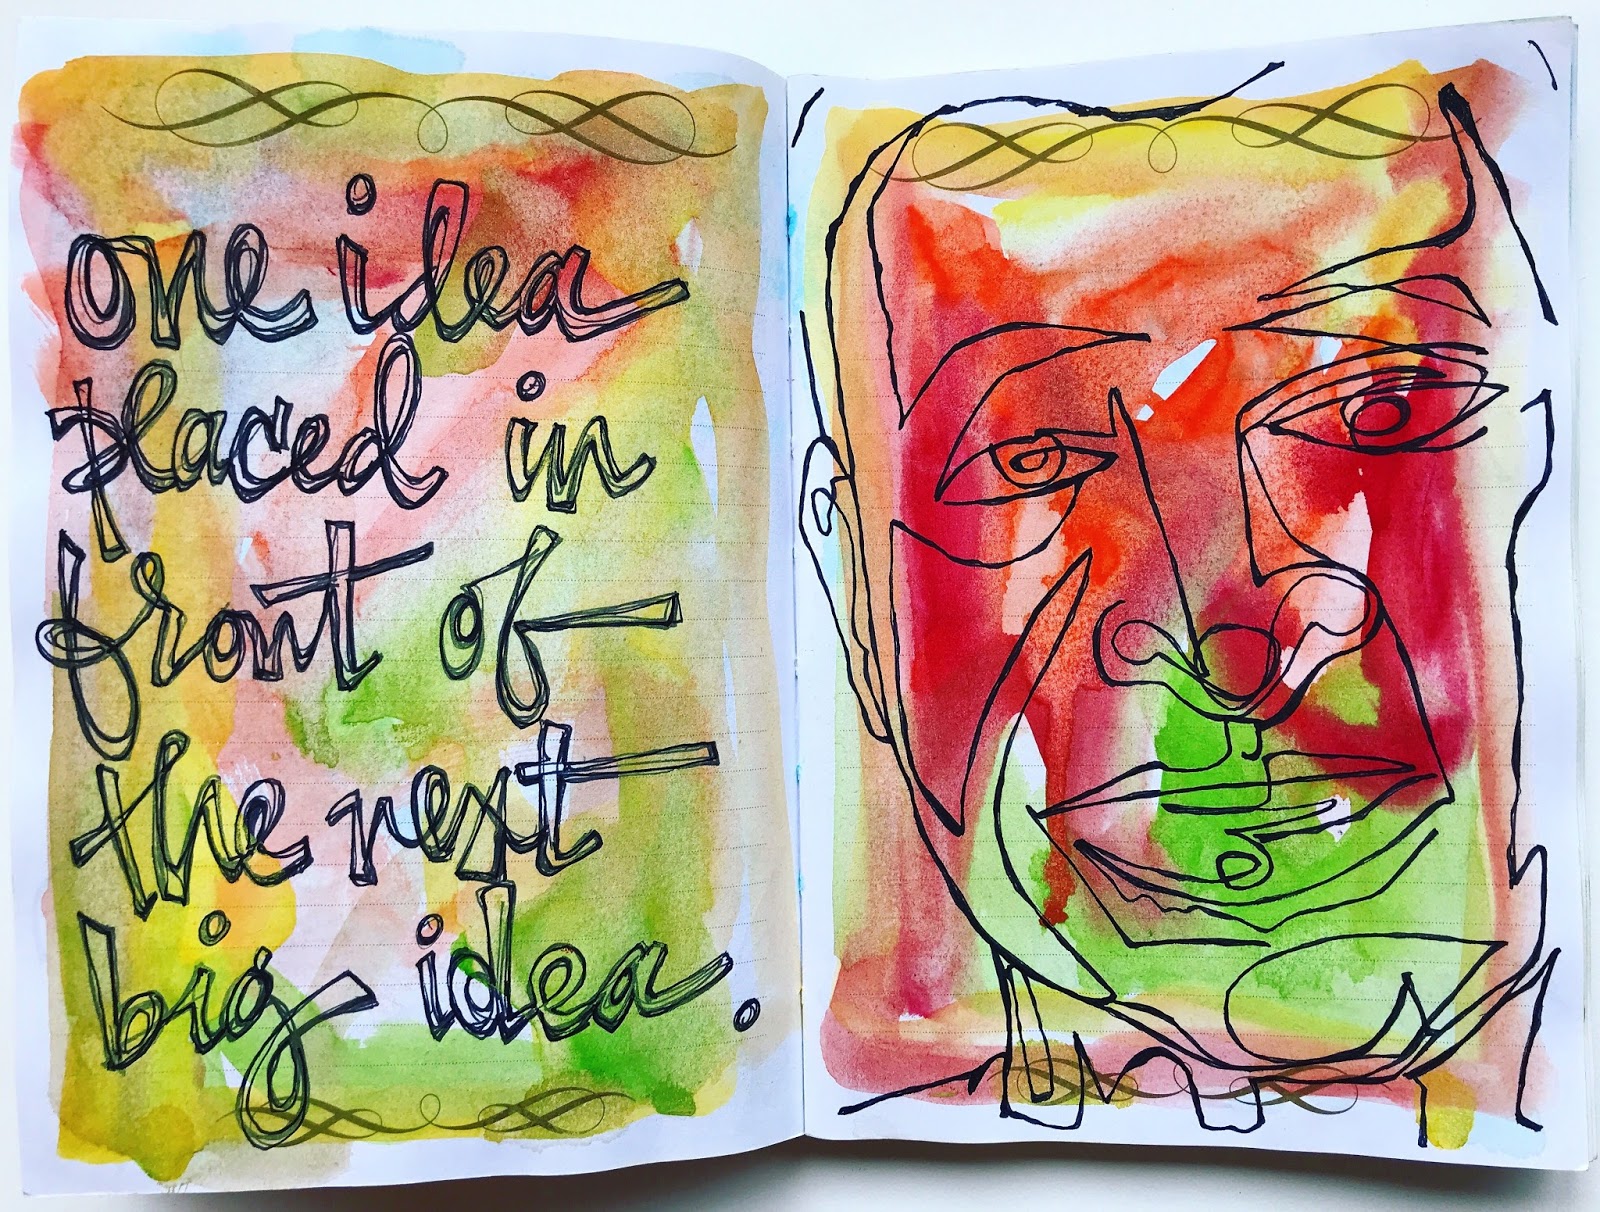 one idea
placed in
front of
the next
big idea.